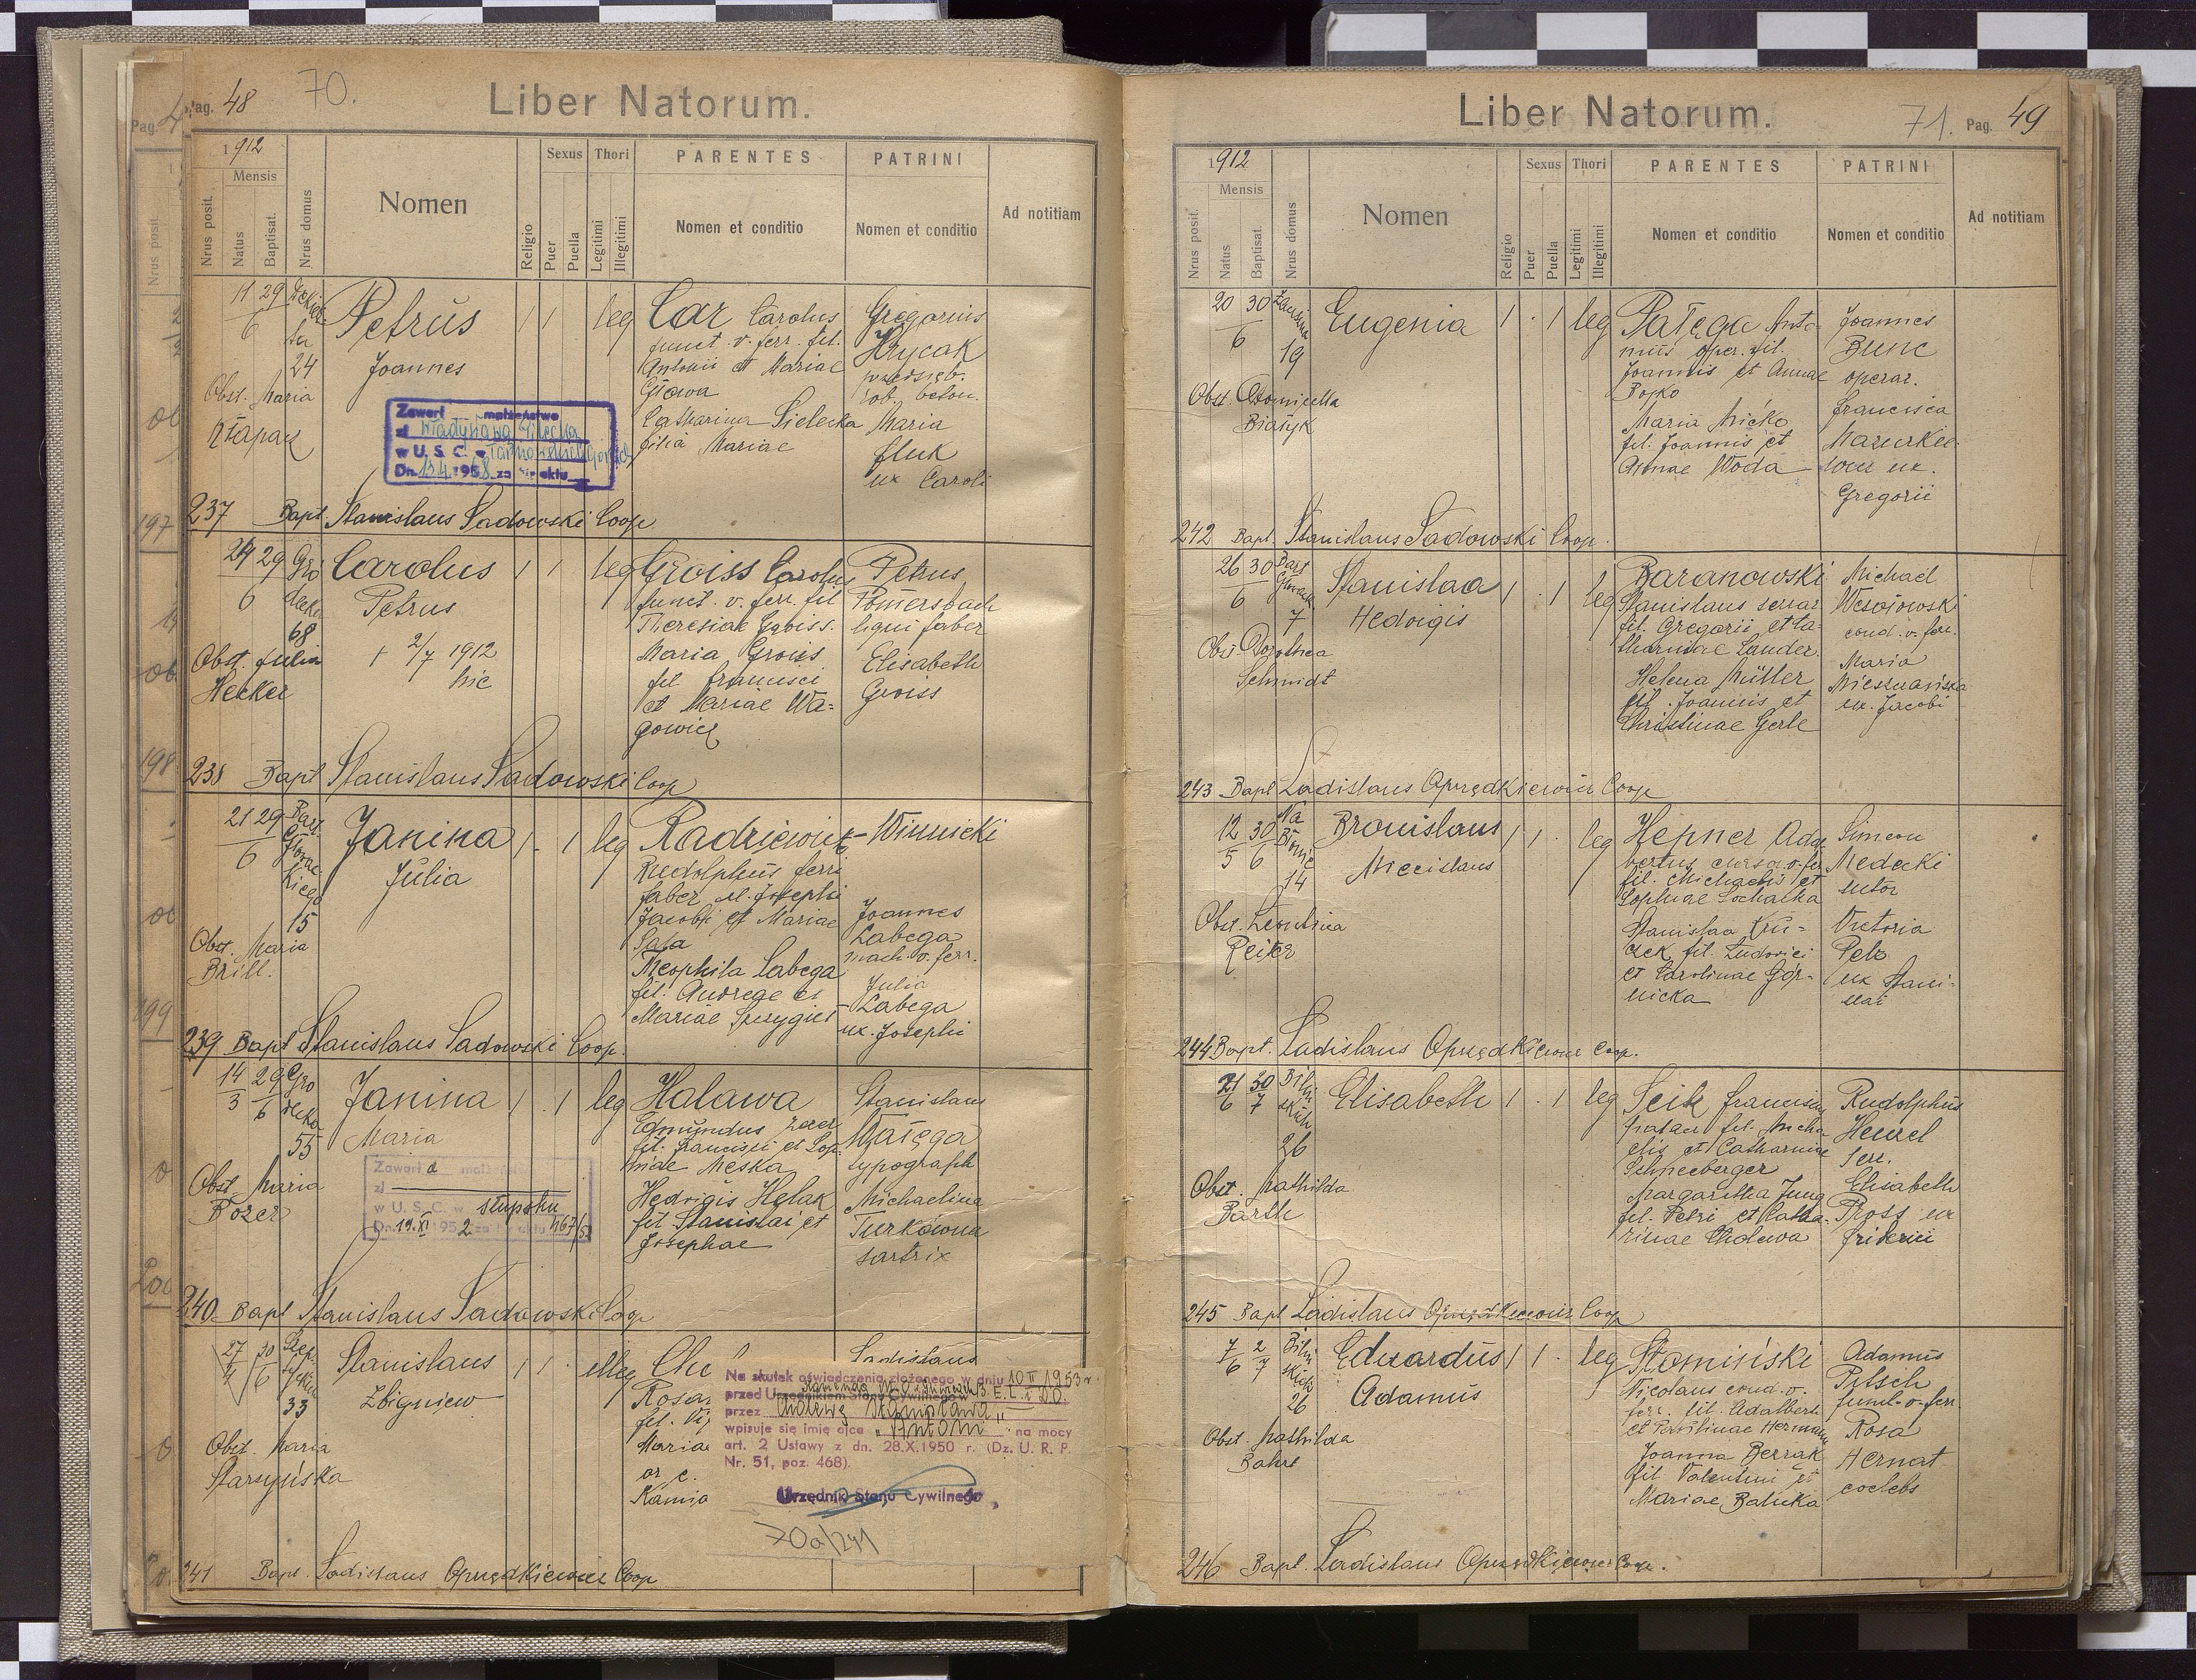 Pag. 48
70.
Liber Natorum.
1912
Mensis
Nrus posit.
Natus
Baptisat.
Nrus domus
Nomen
Religio
Sexus
Puer
Puella
Thori
Legitimi
Illegitimi
PARENTES
Nomen et conditio
PATRINI
Nomen et conditio
Ad notitiam
11 29
6
24
Petrus
Joannes
1 1
leg
Car Carolus
funct. v. ferr. fil.
Antonii et Mariae
Catharina Sielecka
filia Mariae
Gregorius
Hrycak
Maria
Fluk
ux Caroli
Obst. Maria
Zawarł małżeństwo
w U. S. C.
237 Bapt. Stanislaus Sadowski Coop
24 29
6
68
Carolus
Petrus
1 1
leg
† 2/7 1912
hic
Groiss Carolus
funct. v. ferr. fil
Theresiae Groiss.
Maria Groiss
fil Francisci
et Mariae Wa=
gowicz
Petrus
Pomersbach
ligni faber
Elisabeth
Groiss
Obst. Julia
Hecker
238 Bapt Stanislaus Sadowski Coop
21 29
6
15
Janina
Julia
1 . 1
leg
Radziewicz - Winnicki
Rudolphus ferri
faber
Jacobi et Mariae
Theophila Labega
fil. Andreae et
Mariae
Joannes
Labega
mach. v. ferr.
Julia
Labega
ux. Josephi
Obst. Maria
Brill.
239 Bapt Stanislaus Sadowski Coop.
14 29
3 6
55
Janina
Maria
1 . 1
leg
Halawa
Edmundus
fil. Francisci et Sop-
hiae Meska
Hedvigis Helak
fil Stanislai et
Josephae
Stanislaus
Watęga
typograph
Michaelina
Turkowna
sartrix
Obst. Maria
Rozer
Zawarła małżeństwo
w U. S. C. w Słupsku
Dn. 19.XI 1952 za Nr aktu 467/52
240. Bapt Stanislaus Sadowski Coop
27 30
4 6
33
Stanislaus
Zbigniew
1 1 .
illeg
Rosa
Maria
Ladislaus
Obst. Maria
Starzyńska
Na skutek oświadczenia złożonego w dniu 10 II 1953 r.
przed Urzędnikiem Stanu Cywilnego
przez
wpisuje się imię ojca "Antoni" na mocy
art. 2 Ustawy z dn. 28.X.1950 r. (Dz. U. R. P.
Nr. 51, poz. 468).
Urzędnik Stanu Cywilnego
70a/241
241 Bapt Ladislaus Oprzędkiewicz Coop
Liber Natorum.
71. Pag. 49
1912
Mensis
Nrus posit.
Natus
Baptisat.
Nrus domus
Nomen
Religio
Sexus
Puer
Puella
Thori
Legitimi
Illegitimi
PARENTES
Nomen et conditio
PATRINI
Nomen et conditio
Ad notitiam
20 30
6
19
Eugenia
1 . 1
leg
Patęga Anto-
nius oper. fil.
Joannis et Annae
Bojko
Maria Micko
fil. Joannis et
Annae Woda
Joannes
Bunc
operar.
Francisca
ux.
Gregorii
Obst
Białyk
242 Bapt Stanislaus Sadowski Coop.
26 30
6
7
Stanislaa
Hedvigis
1 . 1
leg
Baranowski
Stanislaus serrar
fil. Gregorii et Ca-
tharinae Lander
Helena Müller
fil. Joannis et
Christinae Gerle
Michael
Wesołowski
cond. v. ferr.
Maria
ux. Jacobi
Obst Dorothea
Schmidt
243 Bapt Ladislaus Oprzędkiewicz Coop
12 30
5 6
Na
Błonie
14
Bronislaus
Miecislaus
1 1 .
leg
Hepner Adal
bertus
fil. Michaelis et
Sophiae Lochatka
Stanislaa Kru-
czek fil. Ludovici
et Carolinae Gór-
nicka
Simeon
Medecki
sutor
Victoria
Pelo
Obst. Leontina
Reiter
244 Bapt. Ladislaus Oprzędkiewicz Coop.
21 30
6 7
26
Elisabeth
1 . 1
leg
Seik Franciscus
fil. Micha-
elis et Catharinae
Schneeberger
Margaretha Jung
fil. Petri et Catha-
rinae Cholewa
Rudolphus
Henzel
serr.
Elisabeth
Pross ux
Friderici
Obst. Mathilda
Barth
245 Bapt Ladislaus Oprzędkiewicz Coop
7 2
6 7
26
Eduardus
Adamus
1 1 .
leg
Słomiński
Nicolaus cond. v.
ferr. fil. Adalberti
Joanna Berrak
fil. Valentini et
Mariae Baluka
Adamus
Pytsch
funct. v. ferr.
Rosa
Hernat
coelebs
Obst. Mathilda
246 Bapt. Ladislaus Oprzędkiewicz Coop.